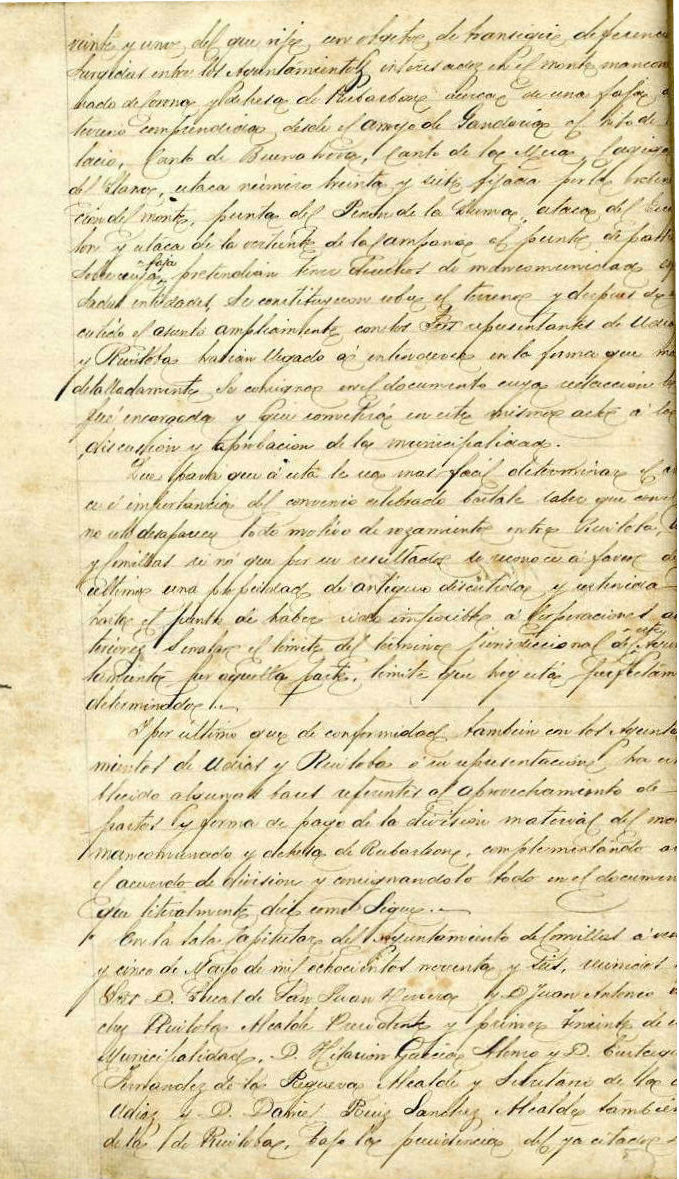 veinte y uno del que rije con objeto de transigir diferenci
surgidas entre los Ayuntamientos interesados en el monte mancom
nado de Corona y dehesa de Rubarbon acerca de una faja
terreno comprendida desde el arroyo de Gandaria al hito de
lacio, Canto de Buena hora, Canto de las
del Llano, estaca número treinta y siete fijada por la orden
ción del monte, punta del de la Luma, estaca del
y estaca de la vertiente de la Campana al punto de part
sobre cuya faja pretendian tener derechos de mancomunidad
entidades, se constituyeron sobre el terreno y despues
cutido el asunto ampliamente con los Sres representantes de Udia
y Ruiloba habian llegado á entenderse en la forma que m
detalladamente se consigna en el documento cuya redaccion
fué encargada y que someteria en este mismo acto á la
discusion y aprobacion de la municipalidad.
Que para que á esta le sea mas facil determinar el
é importancia del convenio celebrado bastale saber que con
no solo desaparece todo motivo de rozamiento entre Ruiloba, U
y Comillas si nó que por su resultado se reconoce á favor de
ultimo una propiedad de antiguo discutida y
hasta el punto de haber sido imposible á Corporaciones an
teriores señalar el limite del termino jurisdiccional de este Ayun
tamiento por aquella parte, limite que hoy está perfectam
determinado.
Y por último que de conformidad tambien con los Ayunta
mientos de Udias y Ruiloba ó su representacion ha
blecido algunas bases referentes al aprovechamiento de
pastos y forma de pago de la division material del mon
mancomunado y dehesa de Rubarbon, complementando
el acuerdo de division y consignandolo todo en el documen
que literalmente dice como sigue.
En la Sala Capitular del Ayuntamiento de Comillas á vein
y cinco de Mayo de mil ochocientos noventa y tres, reunidos
Sres D. Lucas de San Juan y D. Juan Antonio
Ruiloba Alcalde Presidente y primer Teniente de
Municipalidad, D. Hilarion Garcia Alonso y D. Eustaqu
Fernandez de la Reguera Alcalde y Secretario de la de
Udias y D. Daniel Ruiz Sanchez Alcalde tambien
de la de Ruiloba, bajo la presidencia del ya citado